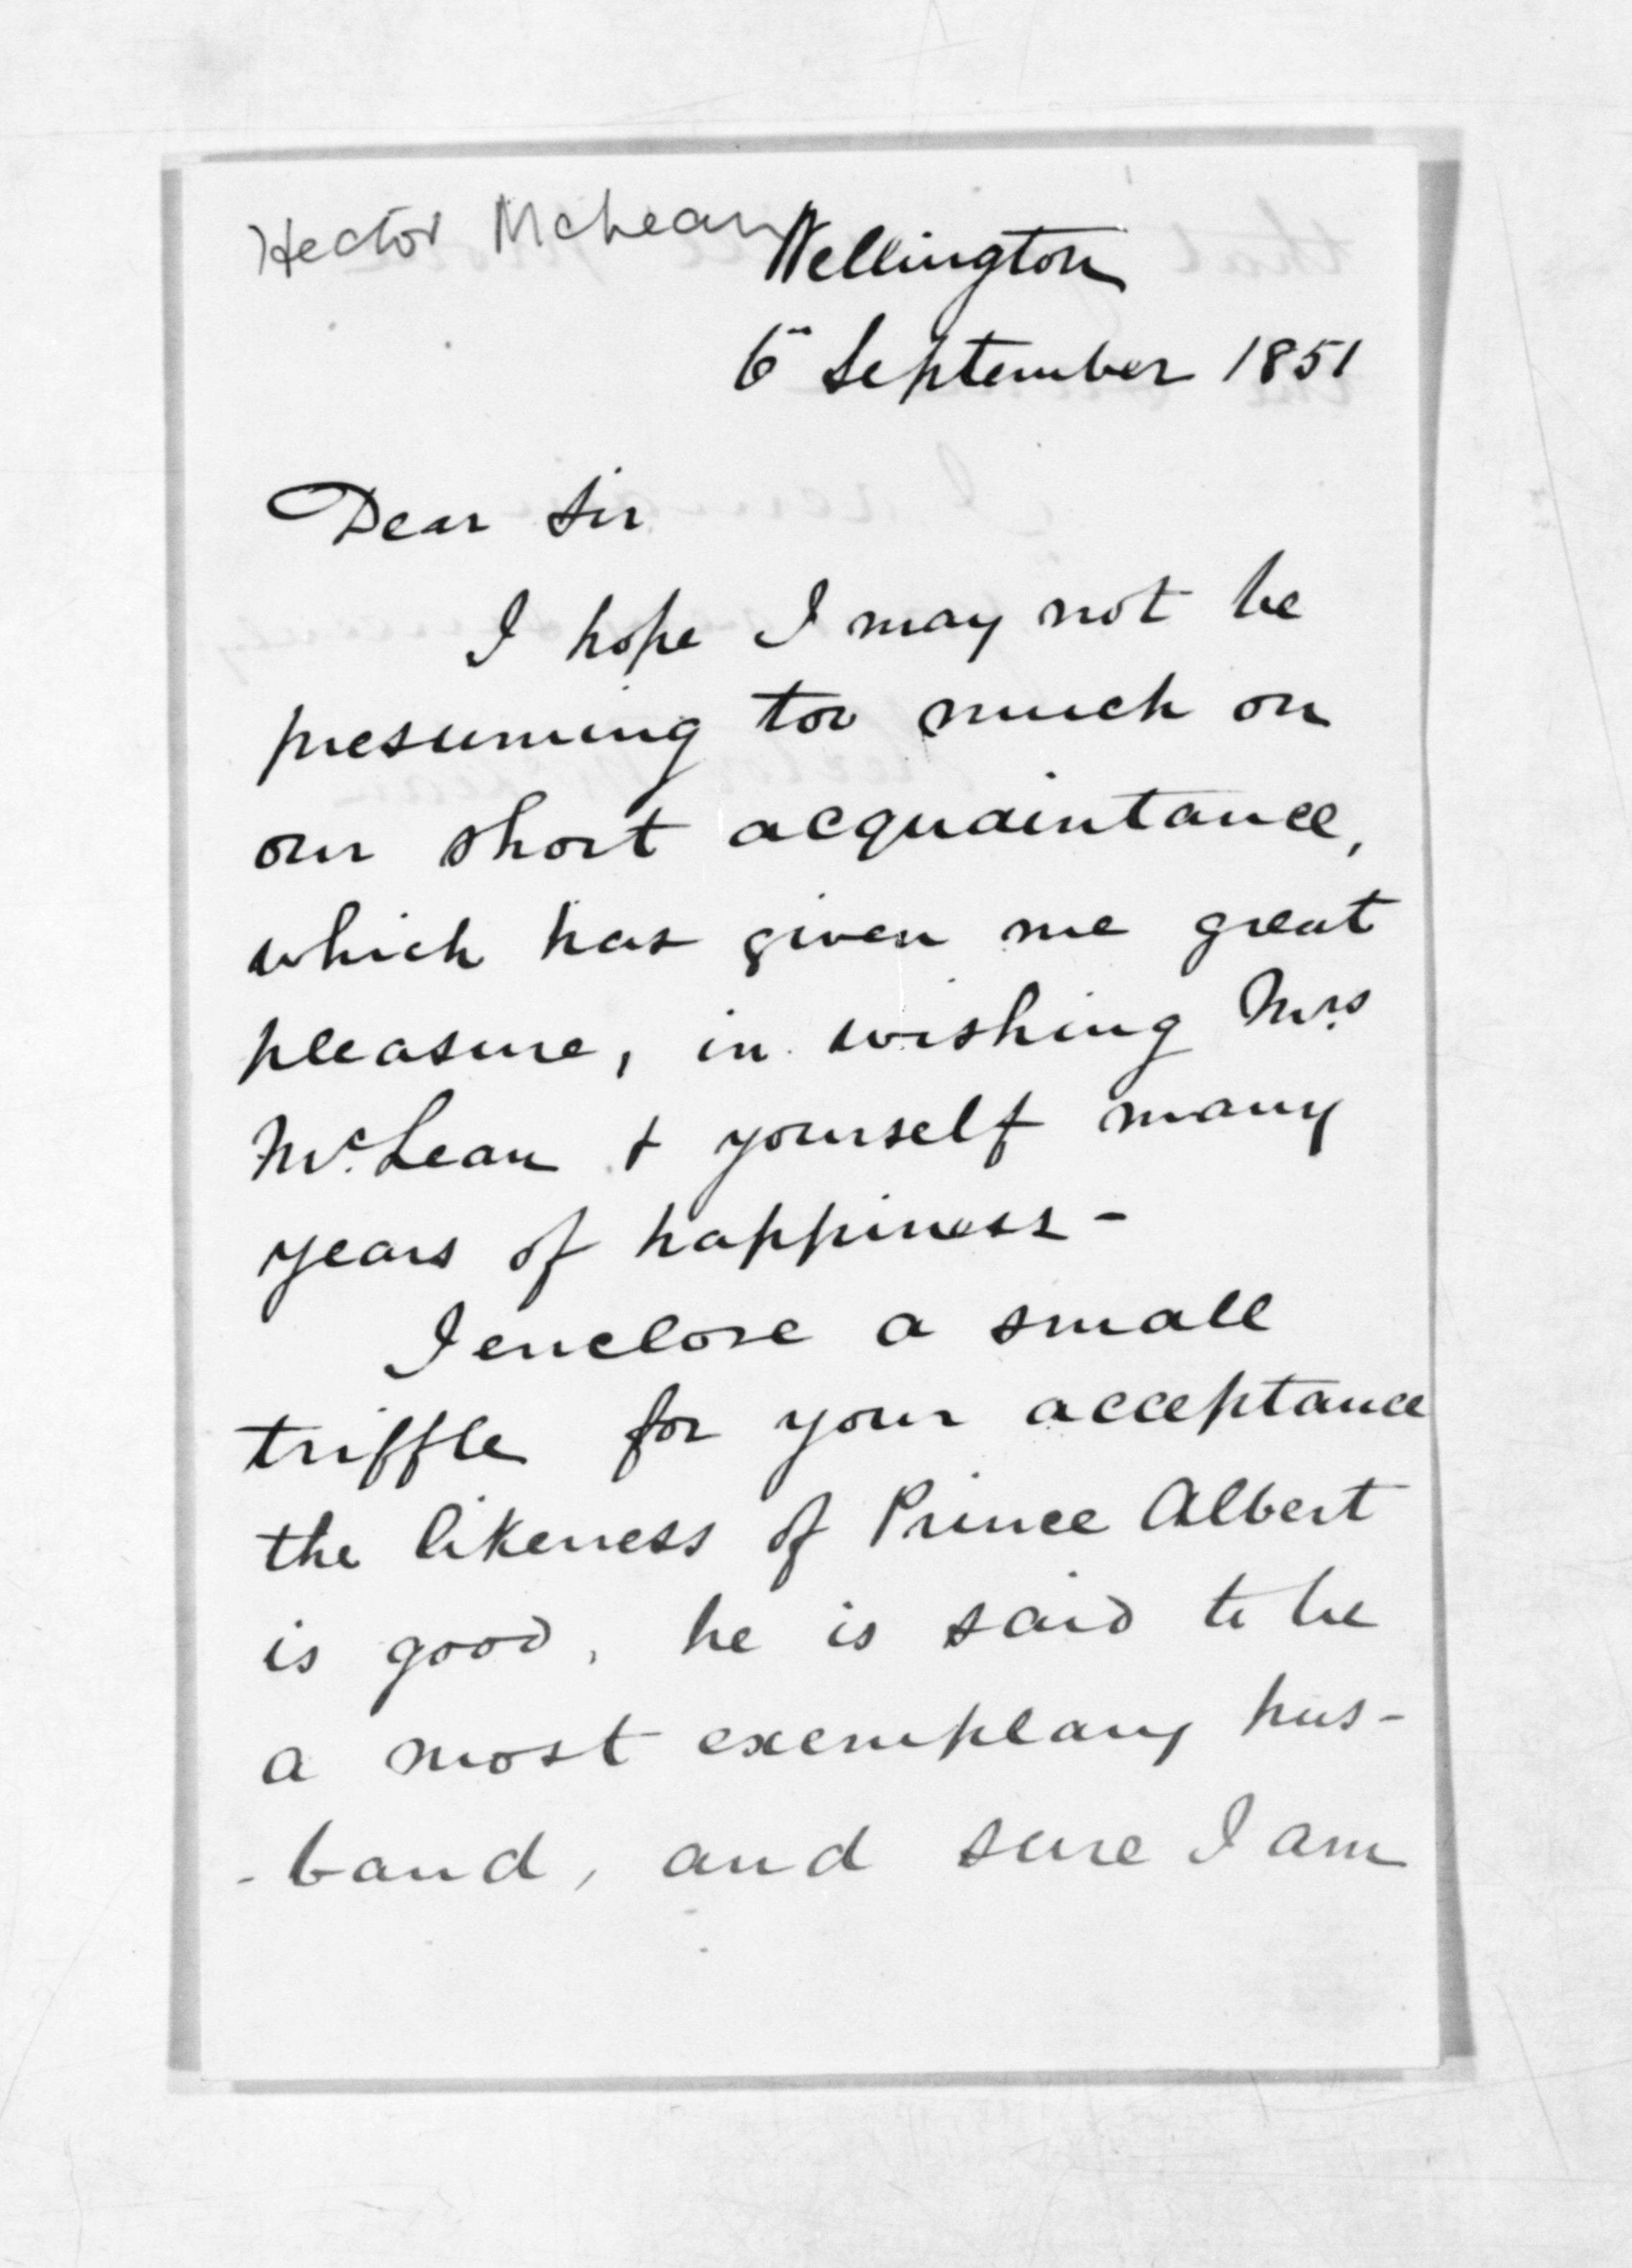 Hector McLean
Wellington
6th September 1851
Dear Sir
I hope I may not be
presuming too much on
our short acquaintance,
which has given me great
pleasure, in wishing Mrs
McLean & yourself many
years of happiness -
I enclose a small
triffle for your acceptance
the likeness of Prince Albert
is good, he is said to be
a most exemplary hus-
- band, and sure I am